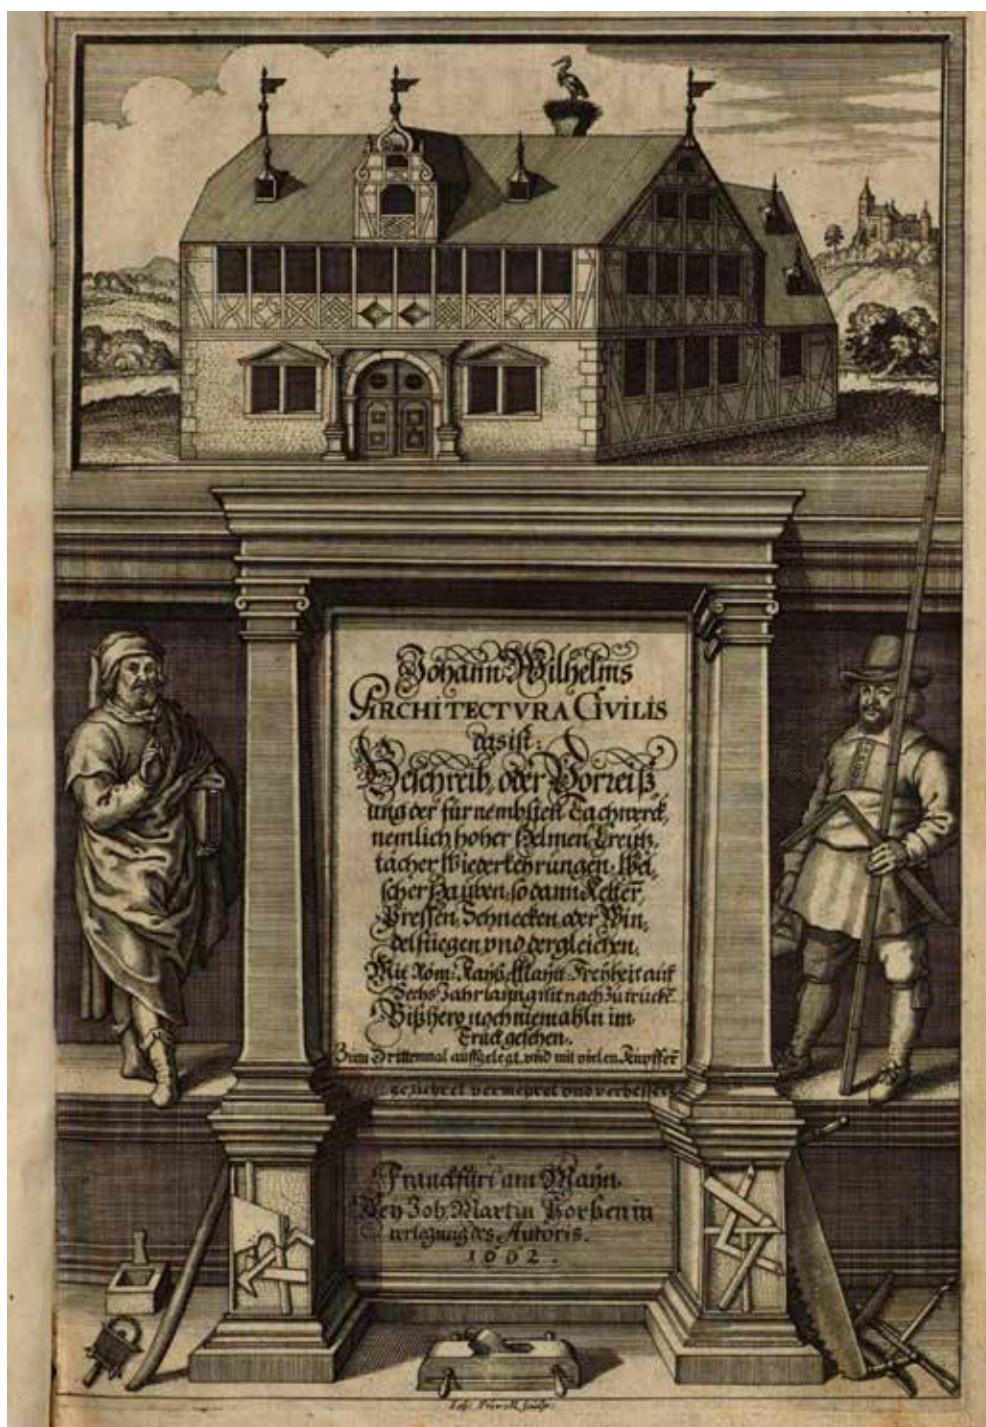 Johann Wilhelms
ARCHITECTVRA CIVILIS
das ist:
Beschreib, oder Vorreiß,
ung der fürnembsten Tachwerck,
nemlich hoher Helmen, Creutz,
tächer Wiederkehrungen, Wel,
scher Hauben, so dann Kelter,
Pressen, Schnecken oder Win,
delstiegen vnd dergleichen.
Mit Röm: Kayß: Mayn: Freyheit auf
Sechs Jahr lanng nit nach zu trucke͂
Bißhero noch niemahln im
Truck gesehen.
Zum Drittenmal auffgelegt, vnd mit vielen Kupffer͂
gezieret vermehret vnd verbessert
Franckfurt am Mayn.
Bey Joh. Martin Porßen in
verlegung des Autoris.
1662.
sculp: